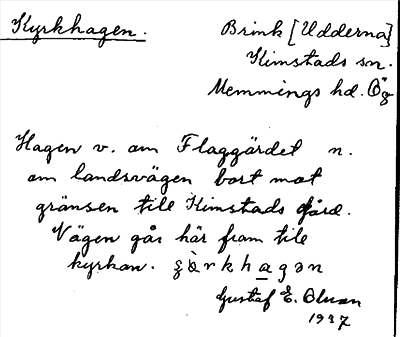 Kyrkhagen.
Brink [Udderna]
Kimstads sn.
Memmings hd. Ög
Hagen v. om Flaggärdet n.
om landsvägen bort mot
gränsen till Kimstads gård.
Vägen går här fram till
kyrkan.
Gustaf E. Olsson
1937